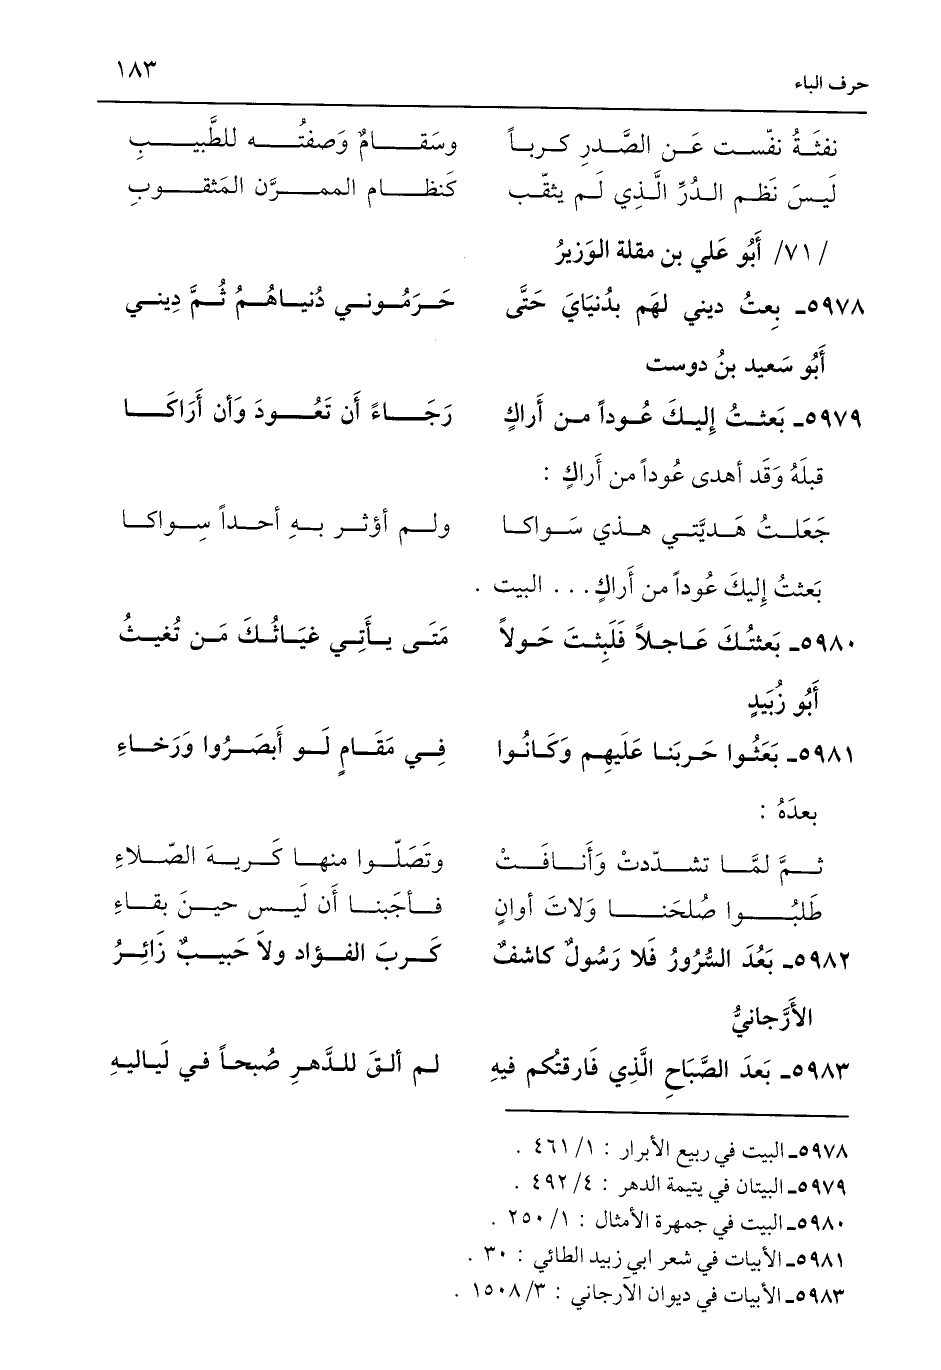 حرف الباء ١٨٣
نفثَةُ نفّست عَن الصَّدرِ كرباً وسَقامٌ وَصفتُه للطَّبيبِ
لَيسَ نَظم الدُرِّ الَّذي لَم يثقّب كَنظام الممرَّن المَثقوبِ
/ ٧١/ أَبُو عَلي بن مقلة الوَزيرُ
٥٩٧٨ـ بِعتُ ديني لهَم بدُنيَايَ حَتَّى حَرَمُوني دُنياهُمُ ثُمَّ دِيني
أَبُو سَعيد بنُ دوست
٥٩٧٩ـ بَعثتُ إليكَ عُوداً من أَراكٍ رَجَاءً أَن تَعُودَ وَأن أَرَاكَا
قبلَهُ وَقَد أهدى عُوداً من أَراكٍ :
جَعَلتُ هَديَّتي هذي سَواكا ولم أؤثر بهِ أحداً سِواكا
بَعثتُ إليكَ عُوداً من أَراكٍ . . . البيت .
٥٩٨٠ـ بَعثتُكَ عَاجلاً فَلَبِثتَ حَولاً مَتَى يأتِي غيَاثُكَ مَن تُغيثُ
أَبُو زُبَيدٍ
٥٩٨١ـ بَعَثُوا حَربَنا عَلَيهِم وَكَانُوا فِي مَقَامٍ لَو أَبصَرُوا وَرَخاءِ
بعدَهُ :
ثمَّ لمَّا تشدّدتْ وَأَنافَتْ وتَصَلّوا منها كَريهَ الصّلاءِ
طَلبُوا صُلحَنا وَلاتَ أوانٍ فأجَبنا أَن لَيس حينَ بقَاءِ
٥٩٨٢ـ بَعُدَ السُّرُورُ فَلا رَسُولٌ كاشفٌ كَربَ الفؤاد ولاَ حَبيبٌ زَائِرُ
الأَرَّجانيُّ
٥٩٨٣ـ بَعدَ الصَّبَاحِ الَّذي فَارقتُكم فيهِ لم ألقَ للدَّهرِ صُبحاً في لَياليهِ
٥٩٧٨ـ البيت في ربيع الأبرار : ٤٦١/١ .
٥٩٧٩ـ البيتان في يتيمة الدهر : ٤٩٢/٤ .
٥٩٨٠ـ البيت في جمهرة الأمثال : ٢٥٠/١ .
٥٩٨١ـ الأبيات في شعر ابي زبيد الطائي : ٣٠ .
٥٩٨٣ـ الأبيات في ديوان الآرجاني : ١٥٠٨/٣ .